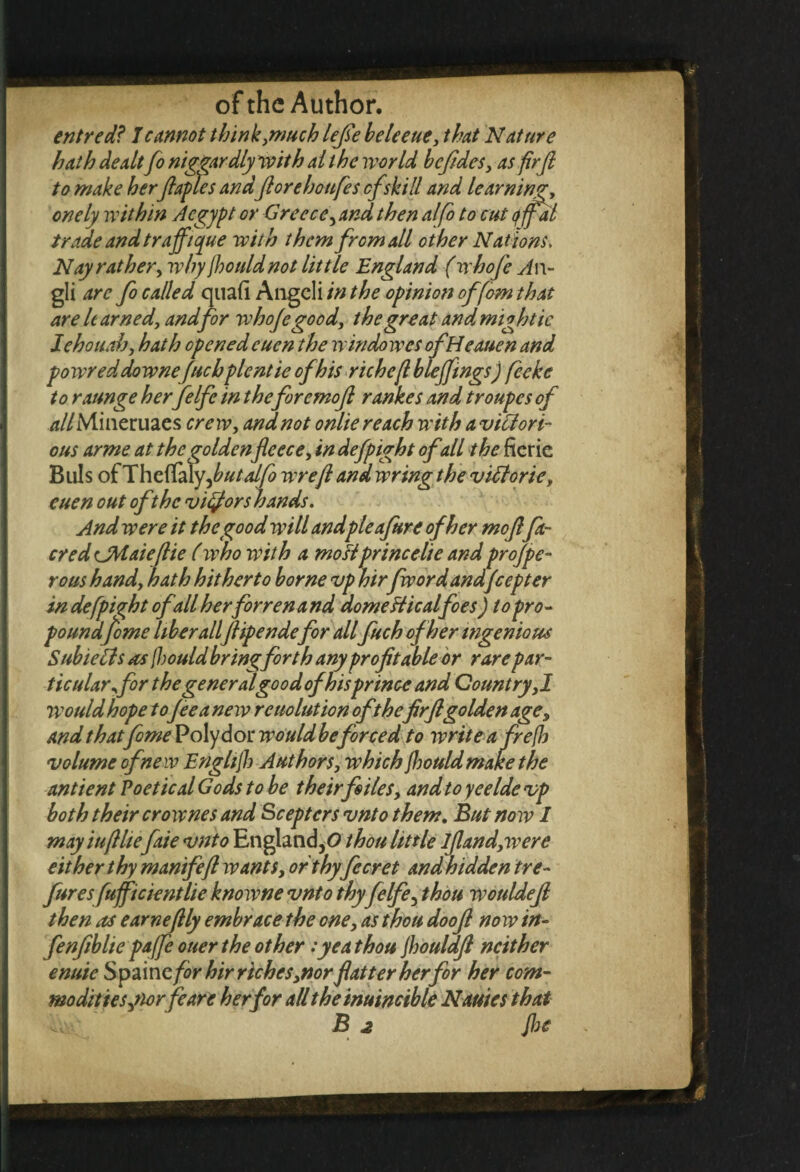 of the Author.
entred? I cannot think,much leſſe beleeue, that Nature
hath dealt ſo niggardly with al the world beſides, as firſt
to make her ſtaples and ſtorehouſes of skill and learning,
onely within Aegypt or Greece,and then alſo to cut off al
trade and traffique with them from all other Nations.
Nay rather, why ſhould not little England (whoſe An-
gli are ſo called quaſi Angeli in the opinion of ſom that
are learned, and for whoſe good, the great and mightie
Iehouah, hath opened euen the windowes of Heauen and
powred downe ſuch plentie of his richeſt bleſſings) ſeeke
to raunge her ſelfe in the foremoſt rankes and troupes of
all Mineruaes crew, and not onlie reach with a victori-
ous arme at the golden fleece, in deſpight of all the fierie
Buls of Theſſaly,but alſo wreſt and wring the victorie,
euen out of the victors hands.
And were it the good will and pleaſure of her moſt ſa-
cred Maieſtie (who with a moſt princelie and proſpe-
rous hand, hath hitherto borne vp hir ſword and ſcepter
in deſpight of all her forren and domeſtical foes) to pro-
pound ſome liberall ſtipende for all ſuch of her ingenious
Subiects as ſhould bring forth any profitable or rare par-
ticular, for the general good of his prince and Country,I
would hope to ſee a new reuolution of the firſt golden age,
and that ſome Polydor would be forced to write a freſh
volume of new Engliſh Authors, which ſhould make the
antient Poetical Gods to be their foiles, and to yeelde vp
both their crownes and Scepters vnto them. But now I
may iuſtlie ſaie vnto England,O thou little Iſland,were
either thy manifeſt wants, or thy ſecret and hidden tre-
ſures ſufficientlie knowne vnto thy ſelfe, thou wouldeſt
then as earneſtly embrace the one, as thou dooſt now in-
ſenſiblie paſſe ouer the other : yea thou ſhouldſt neither
enuie Spaine for hir riches,nor flatter her for her com-
modities,nor feare her for all the inuincible Nauies that
B 2 ſhe